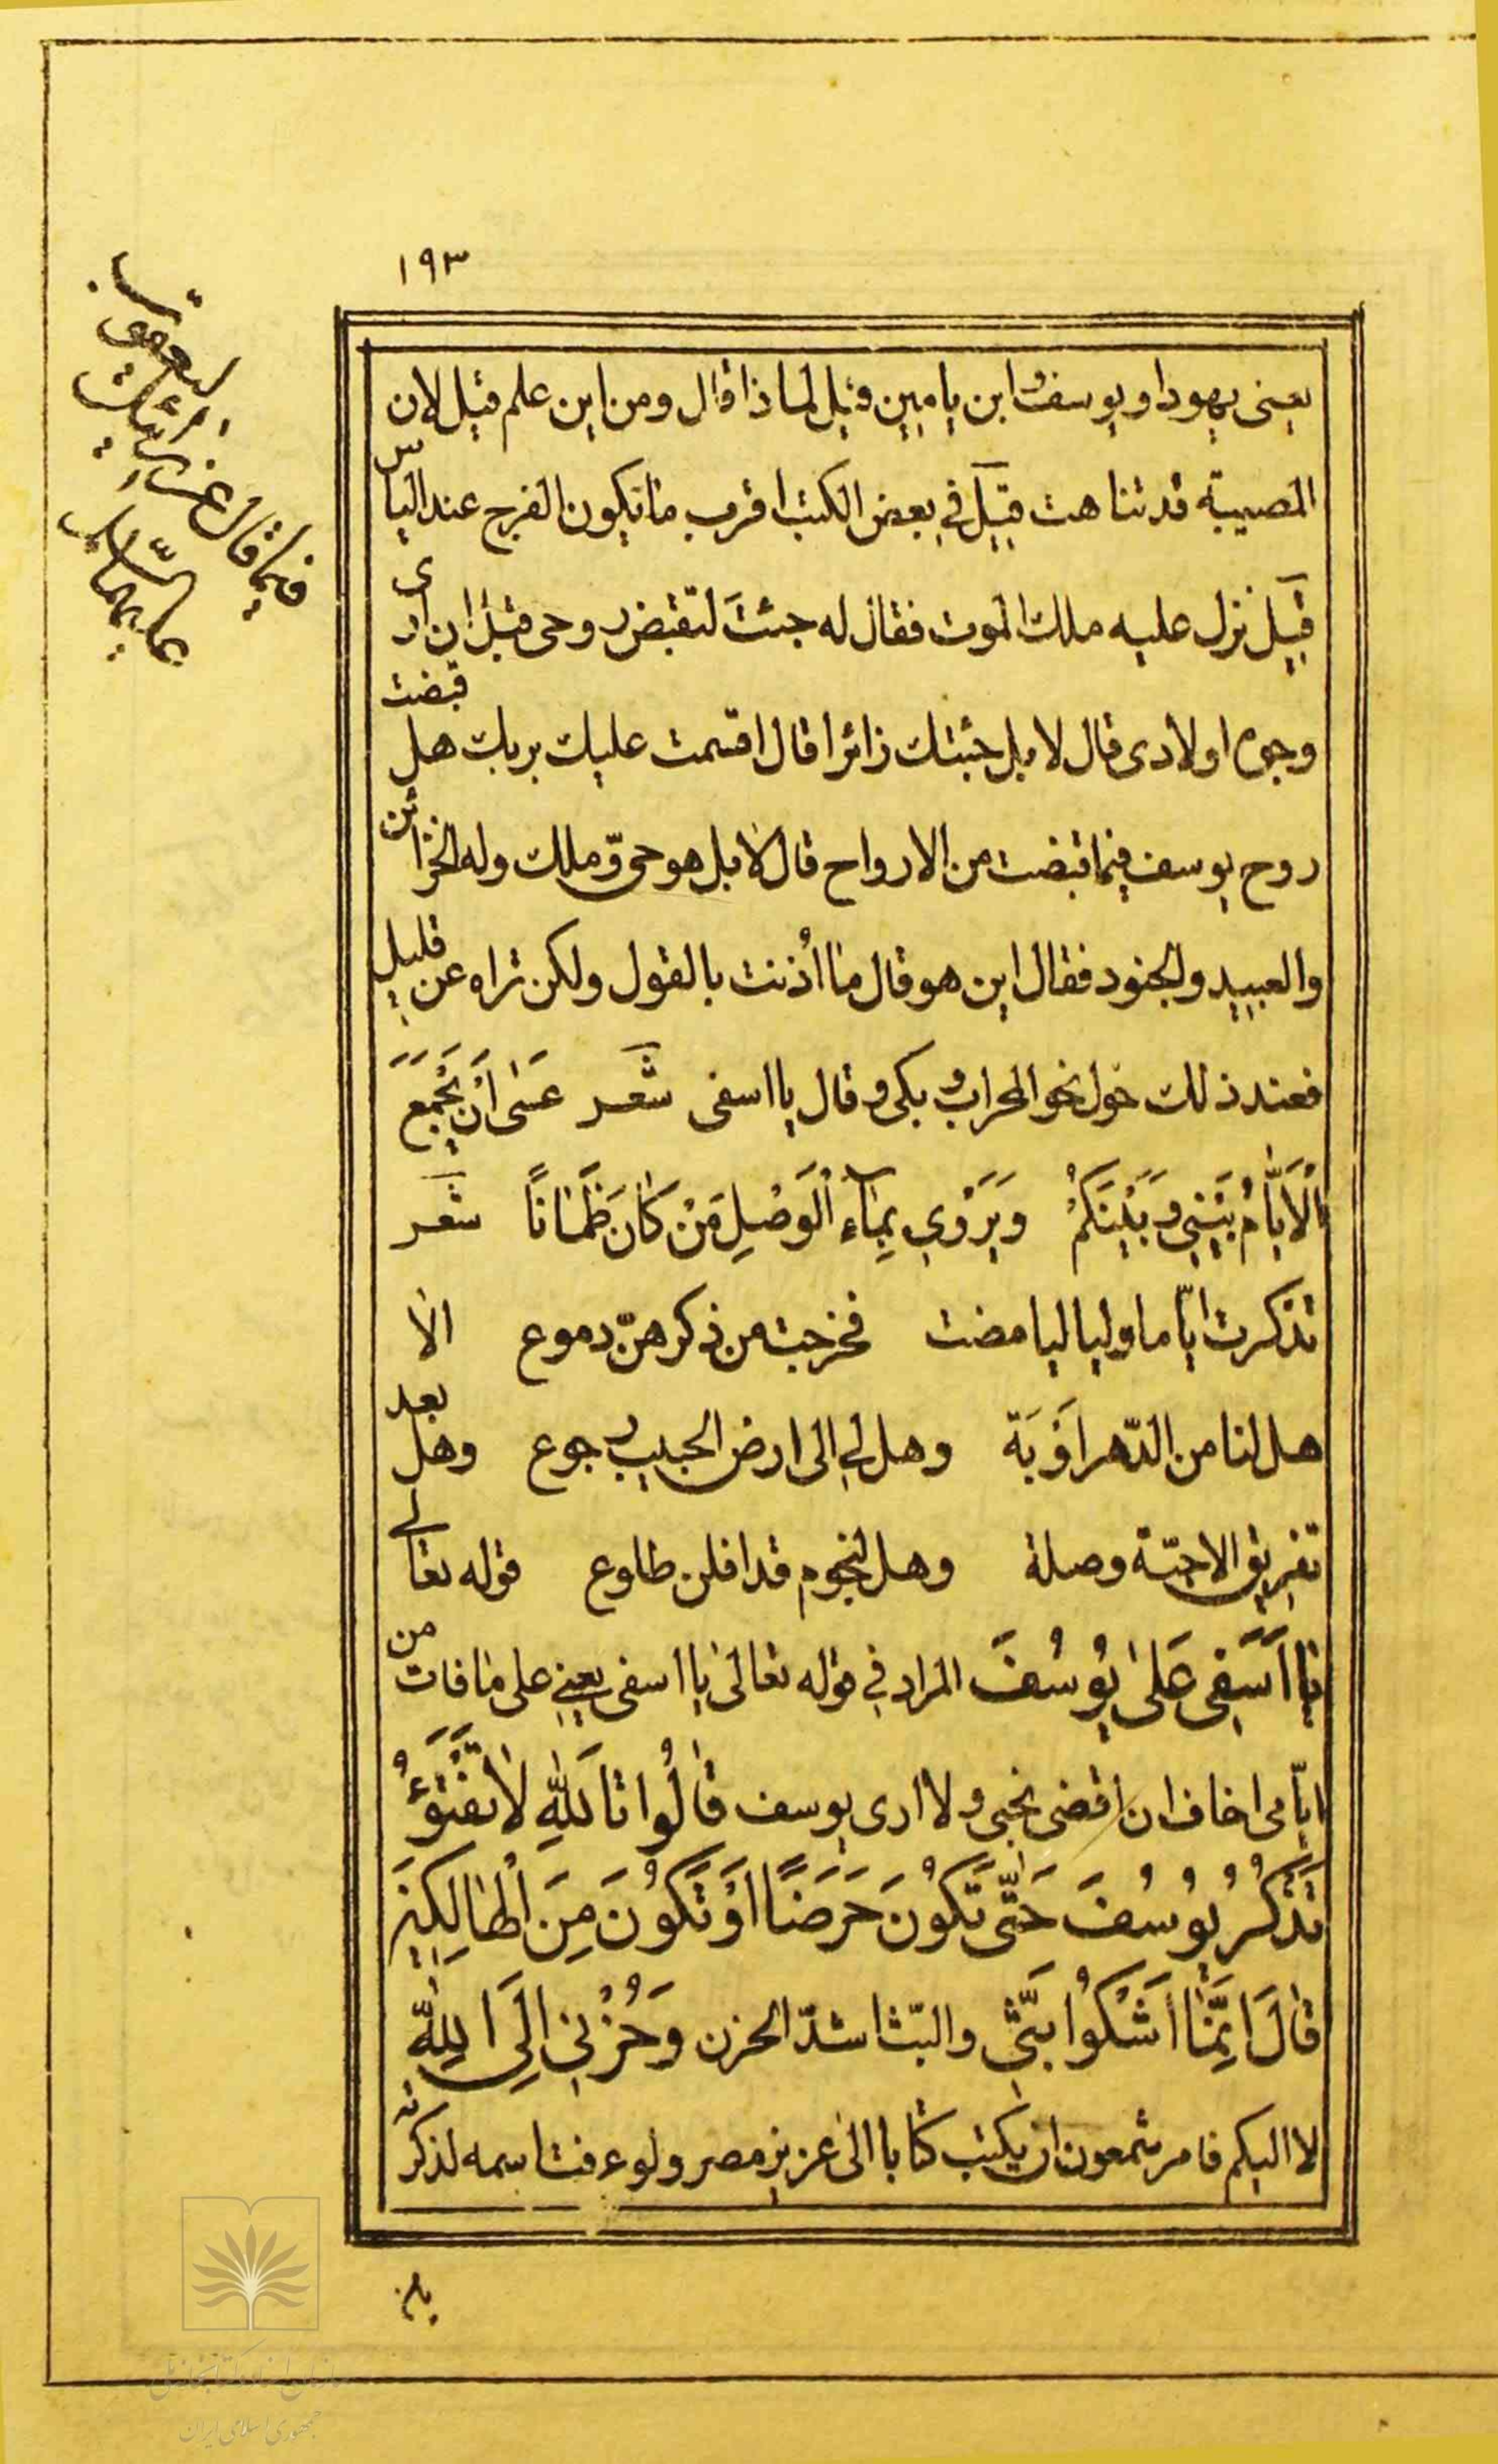 ١٩٣
يعنى يهودا ويوسف وابن يامين وقيل لما ذا قال ومن اين علم قيل لان
المصيبة قد تناهت قيل في بعض الكتب اقرب ما يكون الفرج عند الياس
قيل نزل عليه ملك الموت فقال له جئتَ لتقبض روحى قبل ان ارى
وجوه اولادى قال لا بل جئتك زائرا قال اقسمت عليك بربك هل قبضت
روح يوسف فيما قبضت من الارواح قال لا بل هو حىّ وملك وله الخزائن
والعبيد والجنود فقال اين هو قال ما اُذنت بالقول ولكن تراه عن قليل
فعند ذلك حول نحو المحراب وبكى وقال يا اسفى شعر عَسٰى اَنْ يَجْمَعَ
الْاَيّٰامُ بَيْنِي وَبَيْنَكُمْ وَيَرْوِي بِمٰاءِ الْوَصْلِ مَنْ كٰانَ ظَمْاٰنًا شعر
تذكرت ايّاما ولياليا مضت فخرجت من ذكرهنّ دموع الا
هل لنا من الدّهر اَوْبَة وهل لي الى ارض الحبيب رجوع وهل بعد
تفريق الاحبّة وصلة وهل لنجوم قد افلن طلوع قوله تعالى
يٰا اَسَفٰى عَلٰى يُوسُفَ المراد في قوله تعالى يا اسفى يعني على ما فات من
ايّامى اخاف ان اقضى نحبى ولا ارى يوسف قٰالُوا تَاللّٰهِ لٰا تَفْتَؤُ
تَذْكُرُ يُوسُفَ حَتّٰى تَكُونَ حَرَضًا اَوْ تَكُونَ مِنَ الْهٰالِكِينَ
قٰالَ اِنَّمٰا اَشْكُوا بَثّى والبّث اشدّ الحزن وَحُزْنِي اِلَى اللّٰهِ
لا اليكم فامر شمعون ان يكتب كتابا الى عزيز مصر ولو عرفت اسمه لذكرته
ليعقوب
فيما قال عزرائيل
عليهما السّلام
سازمان اسناد و کتابخانه ملی
جمهوری اسلامی ایران